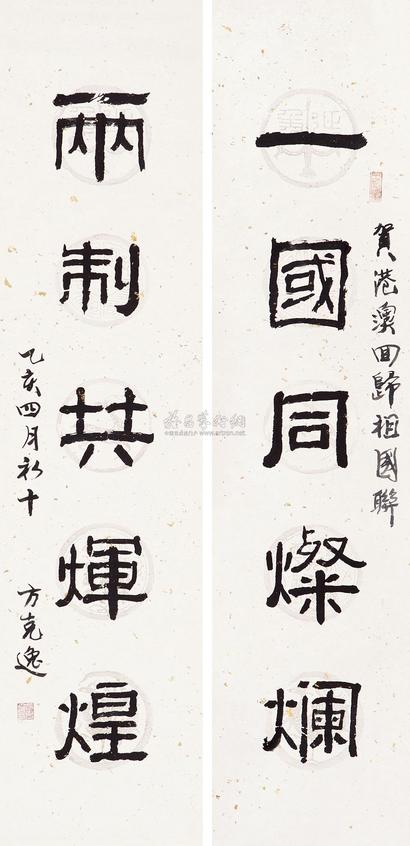 賀港澳回歸祖國聯
一國同燦爛
兩制共輝煌
乙亥四月初十 方克逸